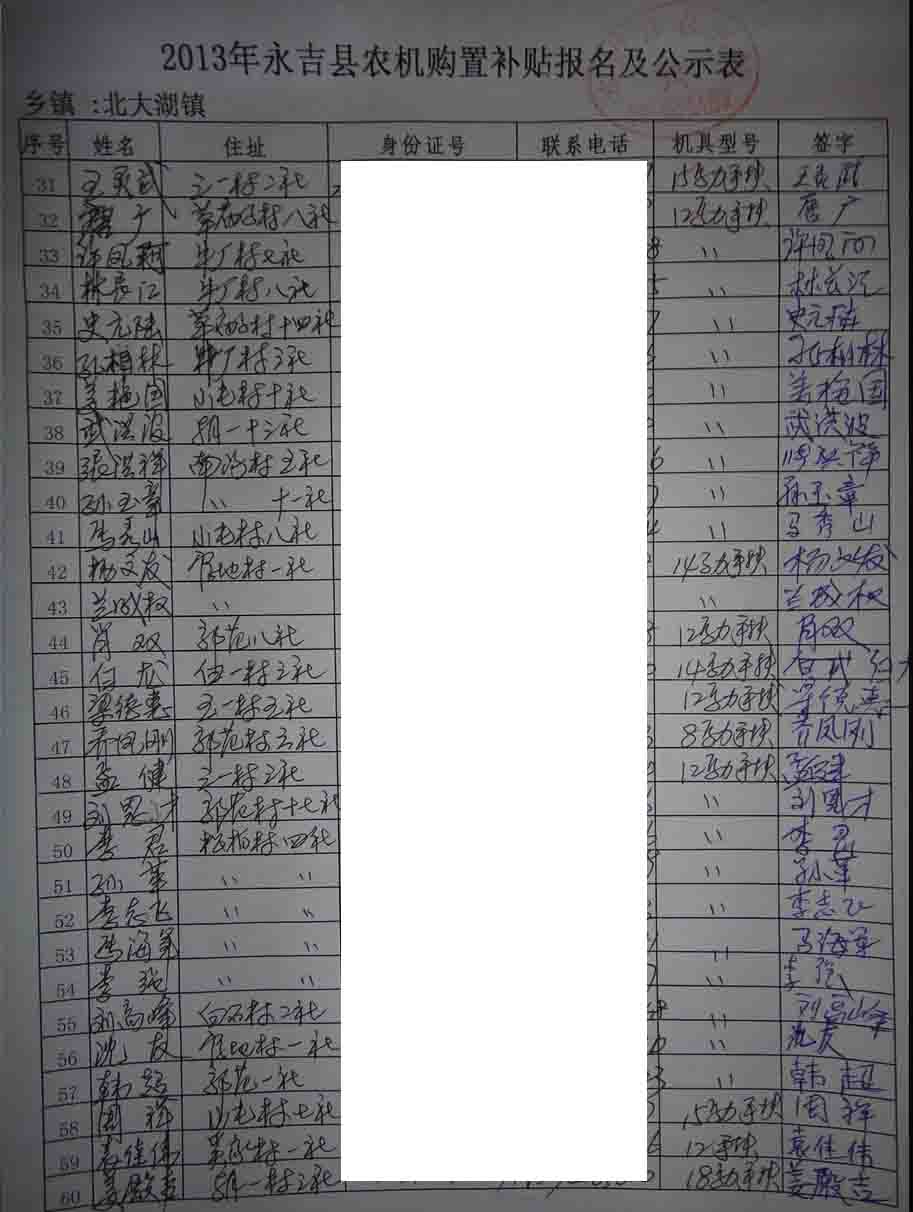 2013年永吉县农机购置补贴报名及公示表
乡镇 :北大湖镇
序号 姓名 住址 身份证号 联系电话 机具型号 签字
31 五一村二社 15马力手扶
32 唐广 草庙子村八社 12马力手扶 唐广
33 许凤翔 牛厂村七社 〃
34 林长江 牛厂村八社 〃 林长江
35 史元陆 草庙子村十四社 〃 史元陆
36 孙相林 牛厂村三社 〃 孙相林
37 姜艳国 小屯村十社 〃 姜艳国
38 武洪波 朝一十三社 〃 武洪波
39 张洪祥 南沟村五社 〃
40 孙玉章 〃 十一社 〃 孙玉章
41 马秀山 小屯村八社 〃 马秀山
42 杨文友 官地村一社 14马力手扶 杨文友
43 兰成权 〃 〃 兰成权
44 肖双 郭范八社 12马力手扶 肖双
45 白龙 伍一村三社 14马力手扶
46 梁德惠 五一村五社 12马力手扶 梁德惠
47 乔凤刚 郭范村三社 8马力手扶 乔凤刚
48 孟健 五一村三社 12马力手扶 孟健
49 刘恩才 郭范村十七社 〃 刘恩才
50 李君 松柏村四社 〃 李君
51 孙革 〃 〃 〃 孙革
52 李志飞 〃 〃 〃 李志飞
53 马海军 〃 〃 〃 马海军
54 李强 〃 〃 〃 李强
55 刘高峰 白石村二社 〃 刘高峰
56 沈友 官地村一社 〃 沈友
57 韩超 郭范一社 〃 韩超
58 周祥 小屯村七社 15马力手扶 周祥
59 袁佳伟 草庙村一社 12手扶 袁佳伟
60 姜殿吉 朝一村三社 18马力手扶 姜殿吉